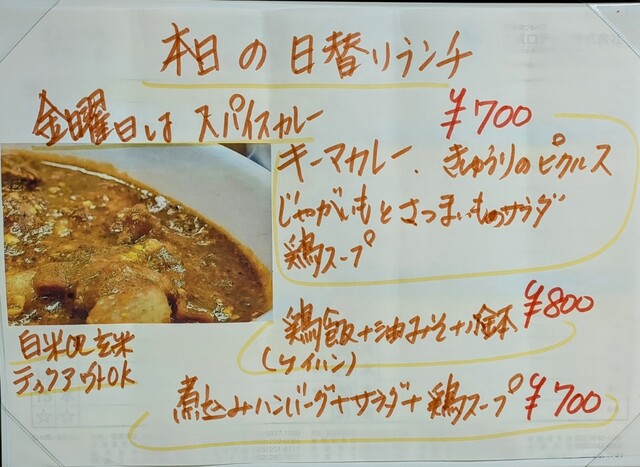 本日の日替りランチ
金曜日は スパイスカレー
¥700
キーマカレー、きゅうりのピクルス
じゃがいもとさつまいものサラダ
鶏スープ
白米or玄米
テイクアウトOK
鶏飯+油みそ+小鉢 ¥800
(ケイハン)
煮込みハンバーグ+サラダ+鶏スープ ¥700